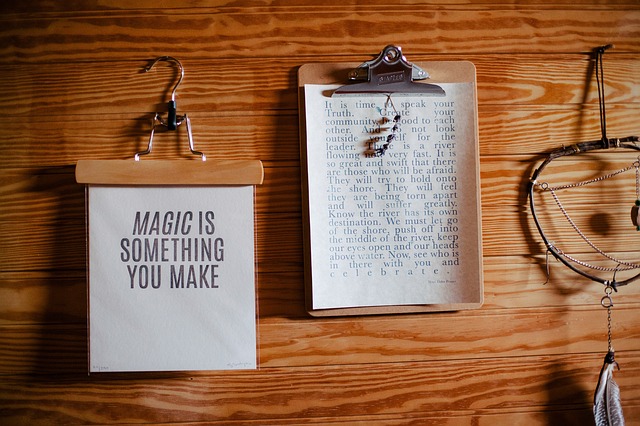 MAGIC IS
SOMETHING
YOU MAKE
It is time speak your
Truth. Create your
community. good to each
other. And not look
outside yourself for the
leader. river
flowing very fast. It is
so great and swift that there
are those who will be afraid.
They will try to hold onto
the shore. They will feel
they are being torn apart
and will suffer greatly.
Know the river has its own
destination. We must let go
of the shore, push off into
the middle of the river, keep
our eyes open and our heads
above water. Now, see who is
in there with you and
celebrate.